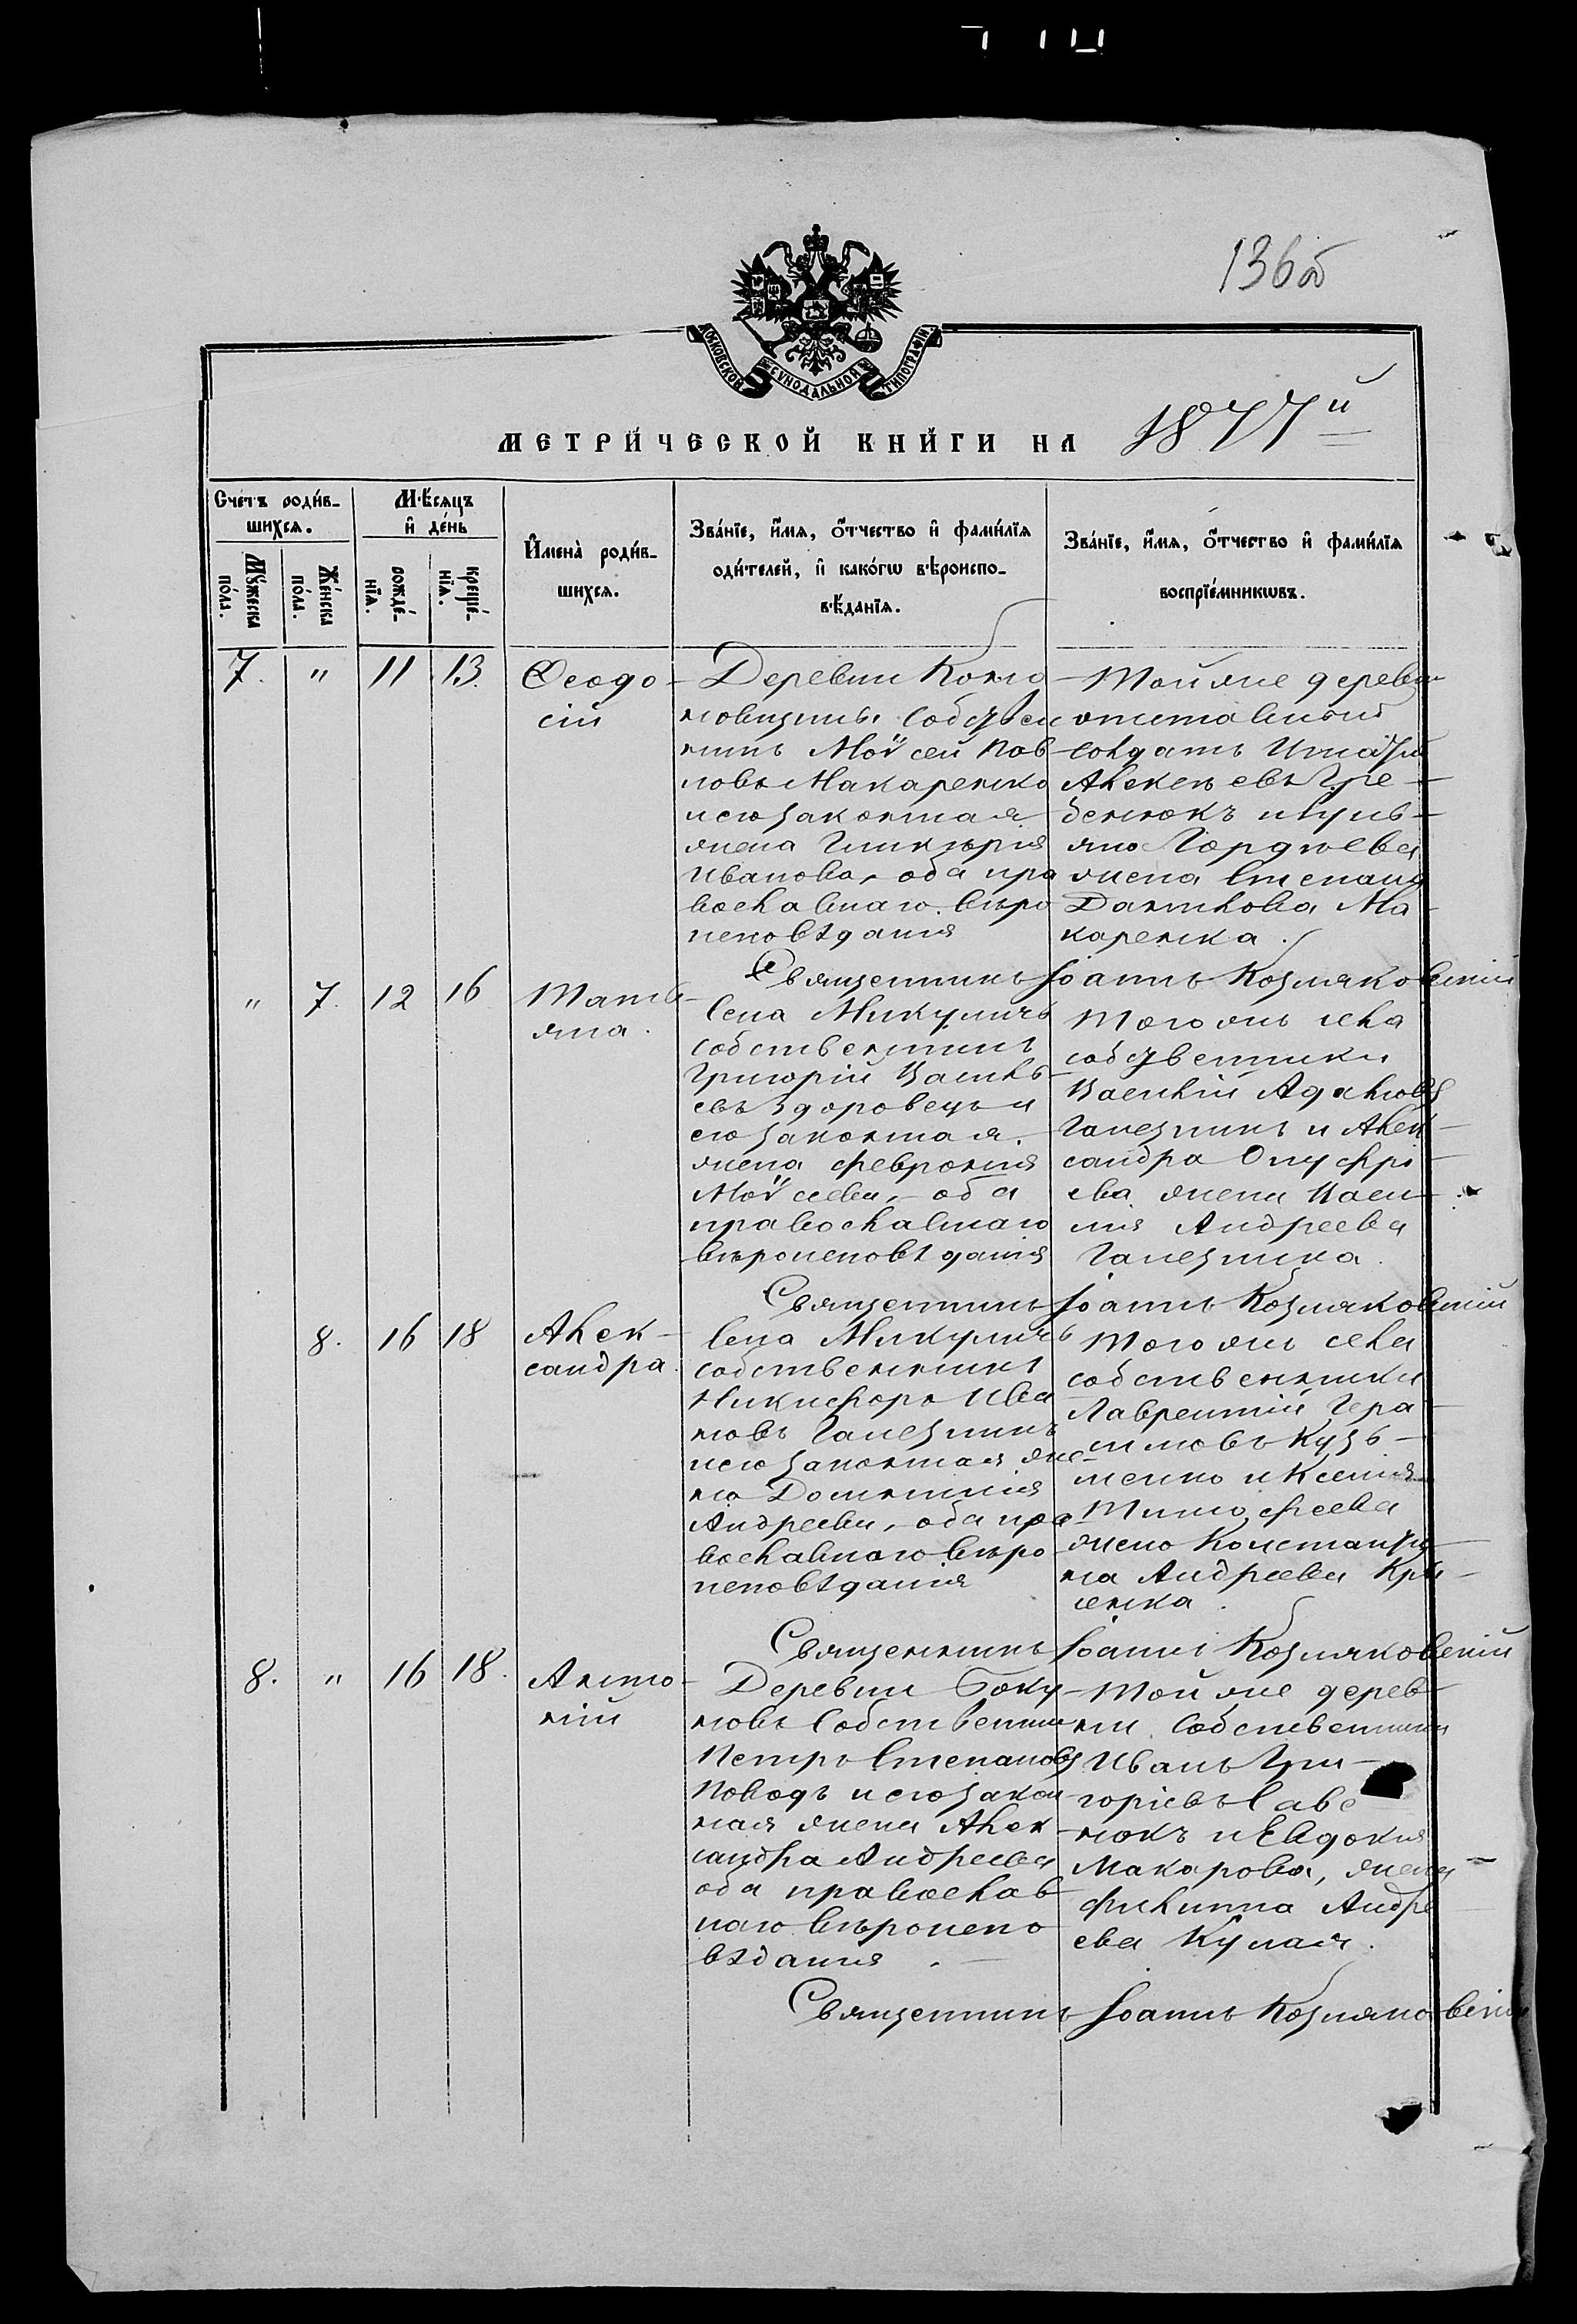 136об
МОСКОВСКОЙ СУНОДАЛЬНОЙ ТИПОГРАФІИ
МЕТРИЧЕСКОЙ КНИГИ НА 1877й
Счетъ родив-
шихся.
Мѣсяцъ
и день
Мужеска
пола.
Женска
пола.
рожде-
нія.
креще-
нія.
Имена родив-
шихся.
Званіе, имя, отчество и фамилія
одителей, и какогω вѣроиспо-
вѣданія.
Званіе, имя, отчество и фамилія
воспріемникωвъ.
7. " 11 13.
Ѳеодо-
сій
Деревни
собствен
никъ Моѵсей Пав
ловъ Макаренко
и его законная
жена Гликерія
Иванова, оба пра
вославнаго вѣро
исповѣданія
Той же деревни
отставной
солдатъ Игнатій
Алексѣевъ Гре-
бенюкъ и Улья-
на Гордѣева
жена Степана
Данилова Ма-
каренка.
Священникъ Іоаннъ Козляковскій
" 7. 12 16
Тать-
яна.
Села Микуличъ
собственникъ
Григорій Василь-
евъ Здоровецъ и
его законная
жена Февронія
Моѵсеева, оба
православнаго
вѣроисповѣданія
Того же села
собственники
Василій
Галезникъ и Алек-
сандра Онуфрі-
ева жена Васи-
лія Андреева
Галезника.
Священникъ Іоаннъ Козляковскій
8. 16 18
Алек-
сандра.
Села Микуличъ
собственникъ
Никифоръ Ива
новъ Галезникъ
и его законная же
на Домникія
Андреева, оба пра
вославнаго вѣро
исповѣданія
Того же села
собственники
Лаврентій Гера-
симовъ Кузь-
менко и Ксенія
Тимофеева
жена Константи
на Андреева
Священникъ Іоаннъ Козляковскій
8. " 16 18.
Анто-
ній
Деревни Баку
новъ собственни
Петръ Степановъ
и его закон
ная жена Алек-
сандра Андреева
оба православ
наго вѣроиспо
вѣданія.
Той же дерев-
ни собственники
Иванъ Гри-
горіевъ Саве
нокъ и Евдокія
Макарова, жена
Филиппа Андре
ева Кулая.
Священникъ Іоаннъ Козляковскій